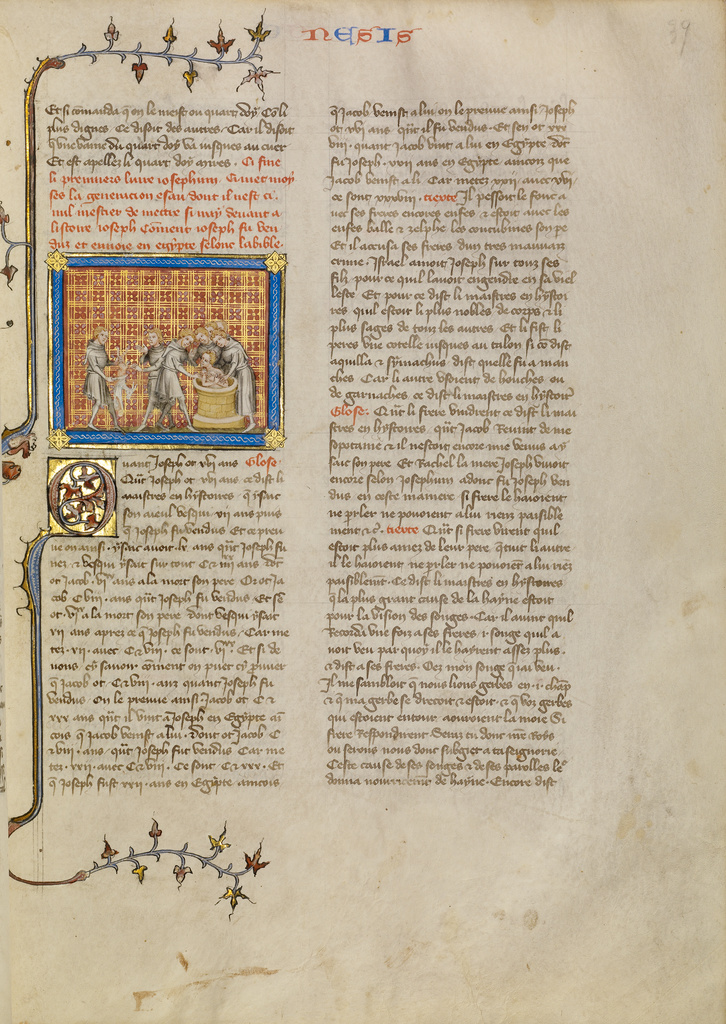 NESIS
39
Et si comanda q̃ on le meist ou quart doy Co li
plus dignes Ce disoit des autres / Car il disoit
q̃ une vaine du quart doy va iusques au cuer
Et est apellez li quart doy mires . Ci fine
li premiers livre iosephum . Ci met moy
ses la generacion esau dont il nest ci
nul mestier de mettre si vay devant a
listoire ioseph Coment ioseph fu ven
dus et envoie en egypte selonc la bible
Quant Joseph ot xvi ans Glose
Qũt Joseph ot xvi ans ce dist li
maistres en hystoires q̃ ysac
son aieul vesqui xii ans puis
q̃ Joseph fu vendus Et ce preu
ve on ainsi . ysaac avoit lx ans qũt Joseph fu
nez & vesqui ysaac sur tout C & iiiixx ans dõt
ot Jacob vixx ans a la mort son pere Or ot Ja
cob C viii ans qũt Joseph fu vendus Et se
ot vixx a la mort son pere dont vesqui ysaac
xii ans apres ce q̃ Joseph fu vendus / Car me
tez xii avec C & viii ce sont vixx Et si de
vons cy savoir coment on puet cy prouver
q̃ Jacob ot C & viii ans quant Joseph fu
vendus On le preuve ainsi Jacob ot C &
xxx ans qũt il vint a Joseph en Egypte ain
cois q̃ Jacob venist a lui / Dont ot Jacob C
& viii ans / qũt Joseph fut vendus Car me
tez xxii avec C & viii Ce sont C & xxx Et
q̃ Joseph fust xxii ans en Egypte aincois
q̃ Jacob venist a lui on le preuve ainsi Joseph
ot xvi ans qũt il fu vendus Et sen ot xxx
viii quant Jacob vint a lui en Egypte dõt
fu Joseph xxii ans en Egypte aincois que
Jacob venist a li Car metez xxii avec xvi
ce sont xxxviii tiexte Il pessoit le fouc a
vec ses freres encores enfes & estoit avec les
enfes balle & zelphe les concubines son pe
Et il accusa ses freres dun tres mauvaiz
crime Israel amoit Joseph sur touz ses
filz pour ce quil lavoit engendre en sa viel
lesce Et pour ce dist li maistres en hystoi
res quil estoit li plus nobles de corps & li
plus sages de touz les autres Et li fist li
peres une cotelle iusques au talon si cõ dist
aquilla & symachus dist quelle fu a man
ches Car li autre usoient de houches ou
de garnaches ce dist li maistres en hystoir
Glose . Qũt li frere vindrent ce dist li mai
stres en hystoires qũt Jacob Revint de me
sopotamie & il nestoit encore mie venus a y
saac son pere Et Rachel la mere Joseph vivoit
encore selon Josephum adonc fu Joseph ven
dus en ceste maniere si frere le haioient
ne p̃ler ne pouoient a lui riens paisible
ment &c̃ . tiexte Qũt si frere virent quil
estoit plus amez de leur pere q̃ tuit li autre
il le haioient ne p̃ler ne pouoiẽt a lui riẽz
paisiblemt̃ . Ce dist li maistres en hystoires
q̃ la plus grant cause de la hayne estoit
pour la vision des songes . Car il avint quil
Recorda une foiz a ses freres .i. songe quil a
voit veu par quoy il le hayrent assez plus .
& dist a ses freres . Oez mon songe q̃ iai veu .
Il me sambloit q̃ nous lions gerbes en .i. chãp
& q̃ ma gerbe se drecoit & estoit & q̃ voz gerbes
qui estoient entour aouroient la moie Si
frere Respondirent Seras tu dont nr̃e Roys
ou serons nous donc subgiet a ta seignorie
Ceste cause de ses songes & de ses parolles le
donna nourricemt̃ de hayne . Encore dist